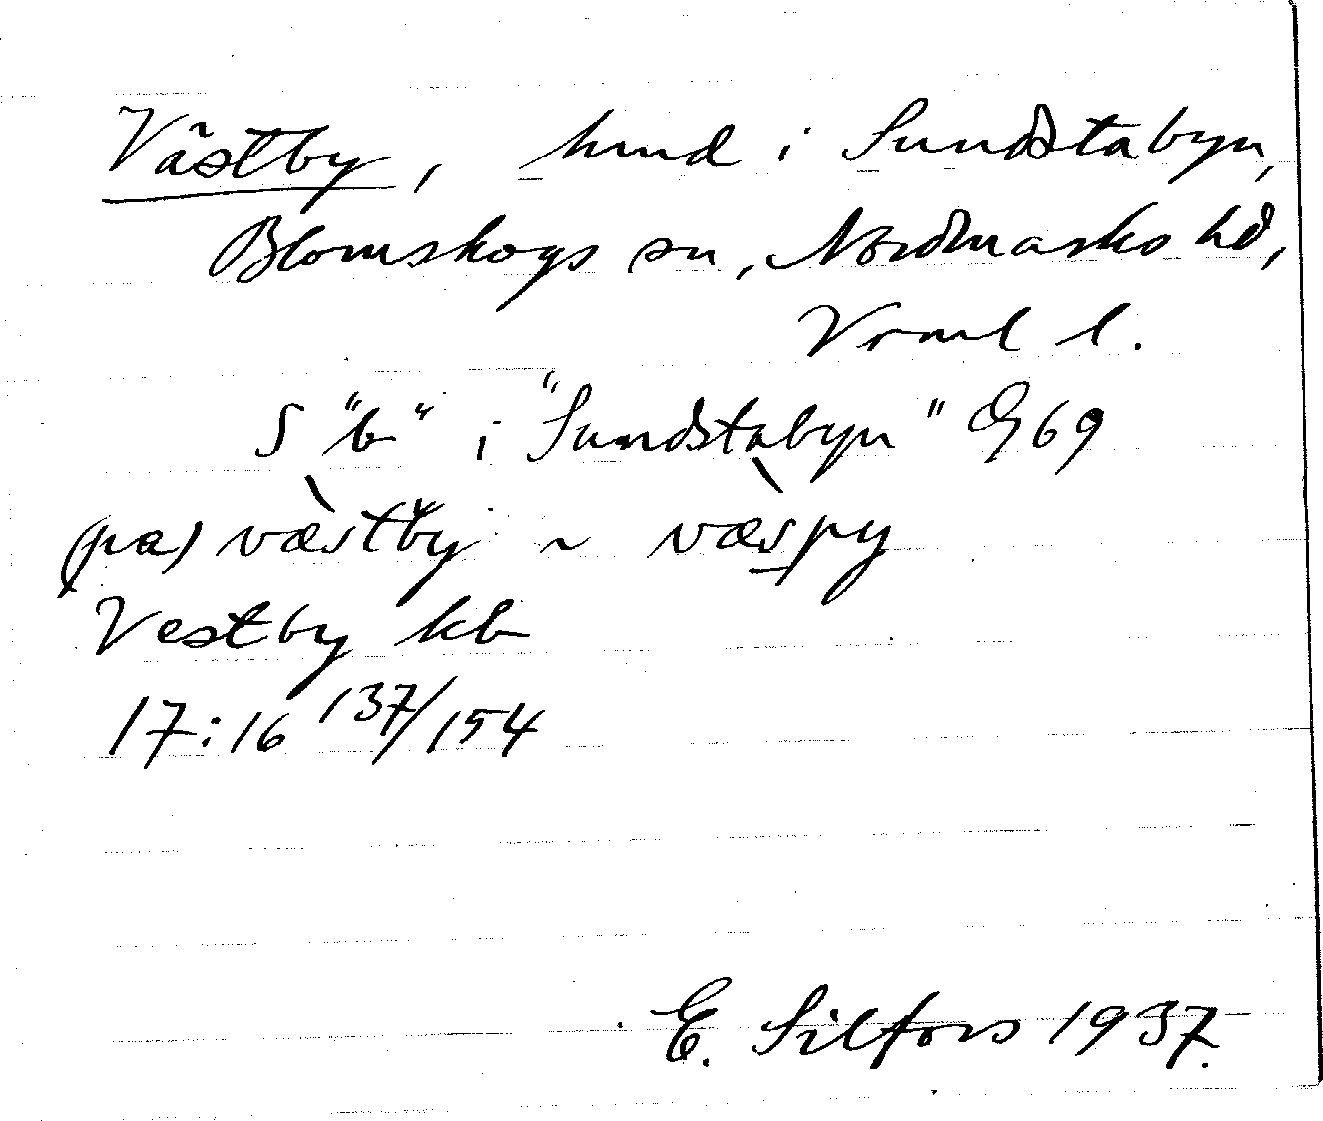 Västby, hmd i Sundstabyn,
Blomskogs sn, Nordmarks hd,
Vrml l.
S "b" i "Sundstabyn" G 69
(pa) væ̀stby ~ væ̀spy
Vestby kb
17:16 137/154
E. Silfors 1937.